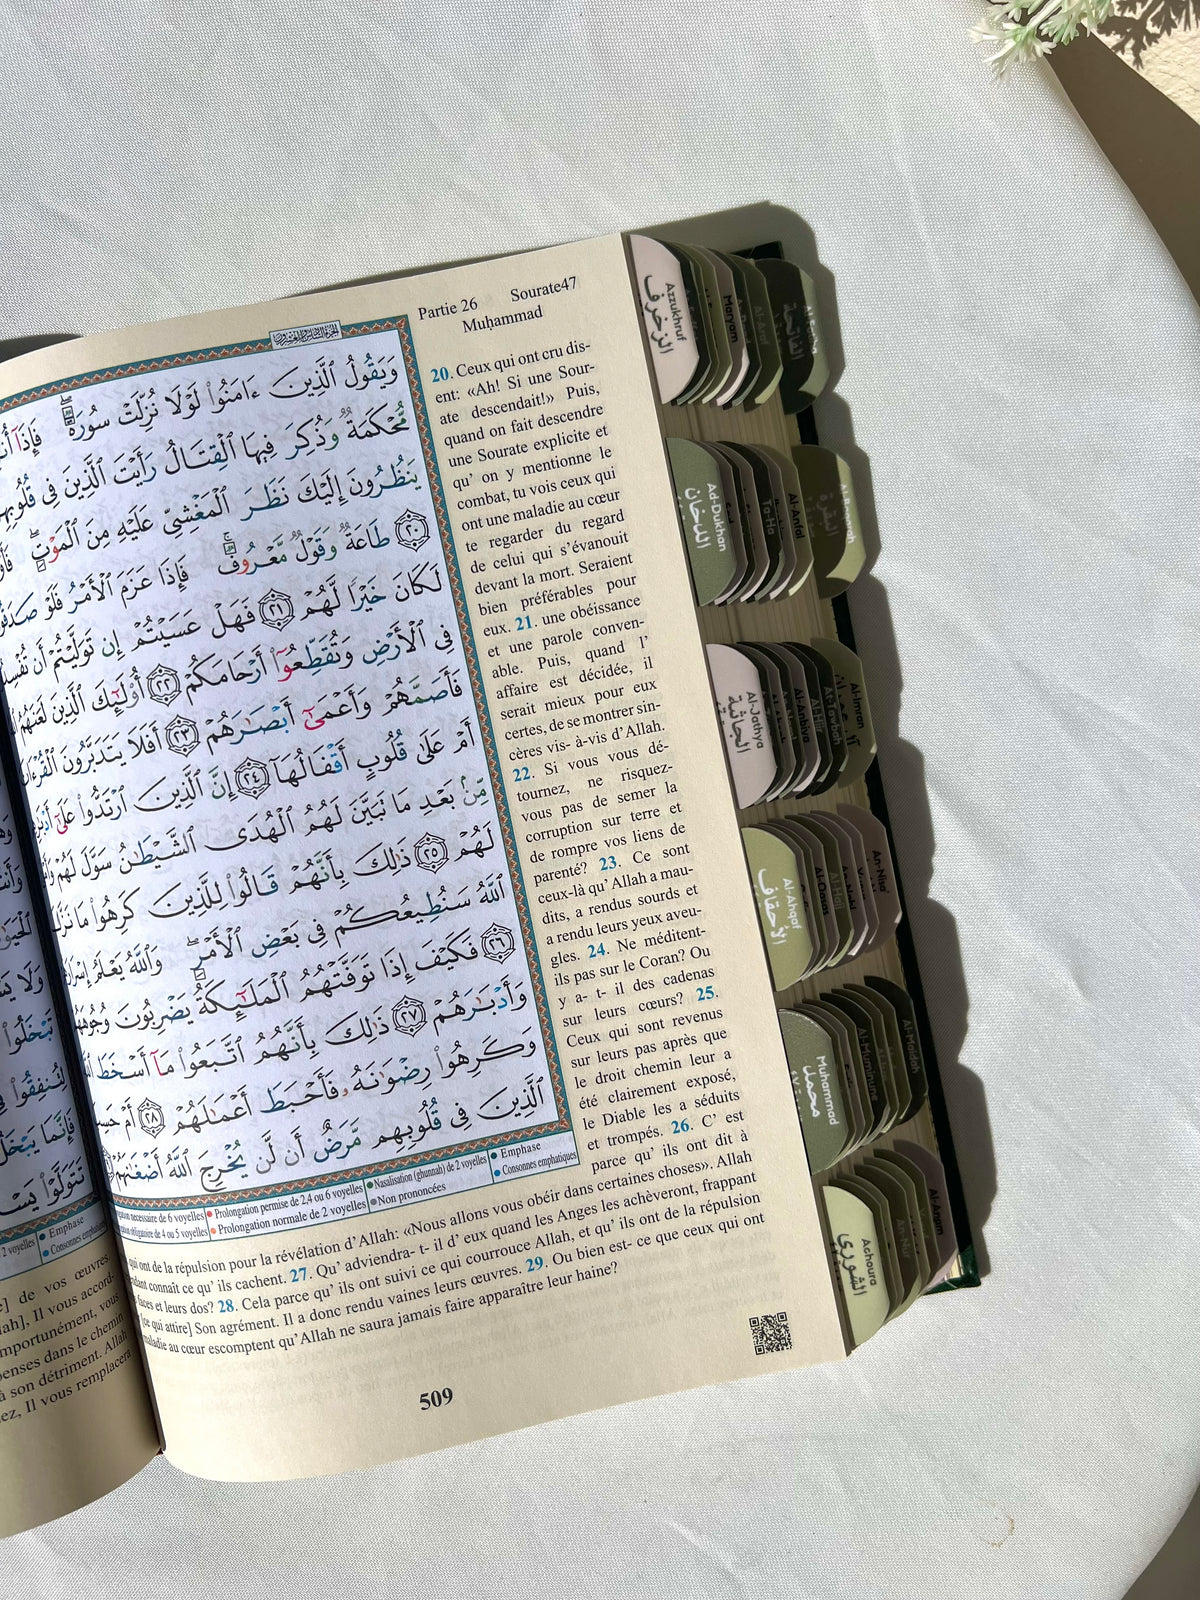 Partie 26 Sourate47
Muḥammad
وَيَقُولُ ٱلَّذِينَ ءَامَنُوا۟ لَوْلَا نُزِّلَتْ سُورَةٌ ۖ فَإِذَآ
مُّحْكَمَةٌ وَذُكِرَ فِيهَا ٱلْقِتَالُ رَأَيْتَ ٱلَّذِينَ فِى قُلُوبِهِم
يَنظُرُونَ إِلَيْكَ نَظَرَ ٱلْمَغْشِىِّ عَلَيْهِ مِنَ ٱلْمَوْتِ ۖ
٢٠ طَاعَةٌ وَقَوْلٌ مَّعْرُوفٌ ۚ فَإِذَا عَزَمَ ٱلْأَمْرُ فَلَوْ صَدَقُوا۟
لَكَانَ خَيْرًا لَّهُمْ ٢١ فَهَلْ عَسَيْتُمْ إِن تَوَلَّيْتُمْ أَن تُفْسِدُوا۟
فِى ٱلْأَرْضِ وَتُقَطِّعُوٓا۟ أَرْحَامَكُمْ ٢٢ أُو۟لَٰٓئِكَ ٱلَّذِينَ لَعَنَهُمُ
فَأَصَمَّهُمْ وَأَعْمَىٰٓ أَبْصَٰرَهُمْ ٢٣ أَفَلَا يَتَدَبَّرُونَ ٱلْقُرْءَانَ
أَمْ عَلَىٰ قُلُوبٍ أَقْفَالُهَآ ٢٤ إِنَّ ٱلَّذِينَ ٱرْتَدُّوا۟ عَلَىٰٓ
مِّنۢ بَعْدِ مَا تَبَيَّنَ لَهُمُ ٱلْهُدَى ٱلشَّيْطَٰنُ سَوَّلَ لَهُمْ
لَهُمْ ٢٥ ذَٰلِكَ بِأَنَّهُمْ قَالُوا۟ لِلَّذِينَ كَرِهُوا۟ مَا نَزَّلَ
ٱللَّهُ سَنُطِيعُكُمْ فِى بَعْضِ ٱلْأَمْرِ ۖ وَٱللَّهُ يَعْلَمُ إِسْرَارَهُمْ
٢٦ فَكَيْفَ إِذَا تَوَفَّتْهُمُ ٱلْمَلَٰٓئِكَةُ يَضْرِبُونَ وُجُوهَهُمْ
وَأَدْبَٰرَهُمْ ٢٧ ذَٰلِكَ بِأَنَّهُمُ ٱتَّبَعُوا۟ مَآ أَسْخَطَ ٱللَّهَ
وَكَرِهُوا۟ رِضْوَٰنَهُۥ فَأَحْبَطَ أَعْمَٰلَهُمْ ٢٨ أَمْ حَسِبَ
ٱلَّذِينَ فِى قُلُوبِهِم مَّرَضٌ أَن لَّن يُخْرِجَ ٱللَّهُ أَضْغَٰنَهُمْ
20. Ceux qui ont cru dis-
ent: «Ah! Si une Sour-
ate descendait!» Puis,
quand on fait descendre
une Sourate explicite et
qu’ on y mentionne le
combat, tu vois ceux qui
ont une maladie au cœur
te regarder du regard
de celui qui s’évanouit
devant la mort. Seraient
bien préférables pour
eux. 21. une obéissance
et une parole conven-
able. Puis, quand l’
affaire est décidée, il
serait mieux pour eux
certes, de se montrer sin-
cères vis- à-vis d’Allah.
22. Si vous vous dé-
tournez, ne risquez-
vous pas de semer la
corruption sur terre et
de rompre vos liens de
parenté? 23. Ce sont
ceux-là qu’ Allah a mau-
dits, a rendus sourds et
a rendu leurs yeux aveu-
gles. 24. Ne méditent-
ils pas sur le Coran? Ou
y a- t- il des cadenas
sur leurs cœurs? 25.
Ceux qui sont revenus
sur leurs pas après que
le droit chemin leur a
été clairement exposé,
le Diable les a séduits
et trompés. 26. C’ est
parce qu’ ils ont dit à
nécessaire de 6 voyelles Prolongation permise de 2,4 ou 6 voyelles Nasalisation (ghunnah) de 2 voyelles Emphase
obligatoire de 4 ou 5 voyelles Prolongation normale de 2 voyelles Non prononcées Consonnes emphatiques
qui ont de la répulsion pour la révélation d’Allah: «Nous allons vous obéir dans certaines choses». Allah
connaît ce qu’ ils cachent. 27. Qu’ adviendra- t- il d’ eux quand les Anges les achèveront, frappant
faces et leurs dos? 28. Cela parce qu’ ils ont suivi ce qui courrouce Allah, et qu’ ils ont de la répulsion
[ce qui attire] Son agrément. Il a donc rendu vaines leurs œuvres. 29. Ou bien est- ce que ceux qui ont
maladie au cœur escomptent qu’Allah ne saura jamais faire apparaître leur haine?
509
2 voyelles Emphase
Consonnes emphatiques
de vos œuvres.
Il vous accord-
importunément, vous
dans le chemin
à son détriment. Allah
Il vous remplacera
Azzukhruf
الزخرف
Maryam
Ad-Dukhan
الدخان
Ta-Ha
Al-Anfal
Al-Baqarah
البقرة
Al-Jathya
الجاثية
Al-Anbiya
Al-Hijr
At-Tawbah
Al-Imran
Al-Ahqaf
الأحقاف
Al-Qasas
An-Nisa
Muhammad
محمد
Al-Muminune
Al-Maidah
Achoura
الشورى
An-Nur